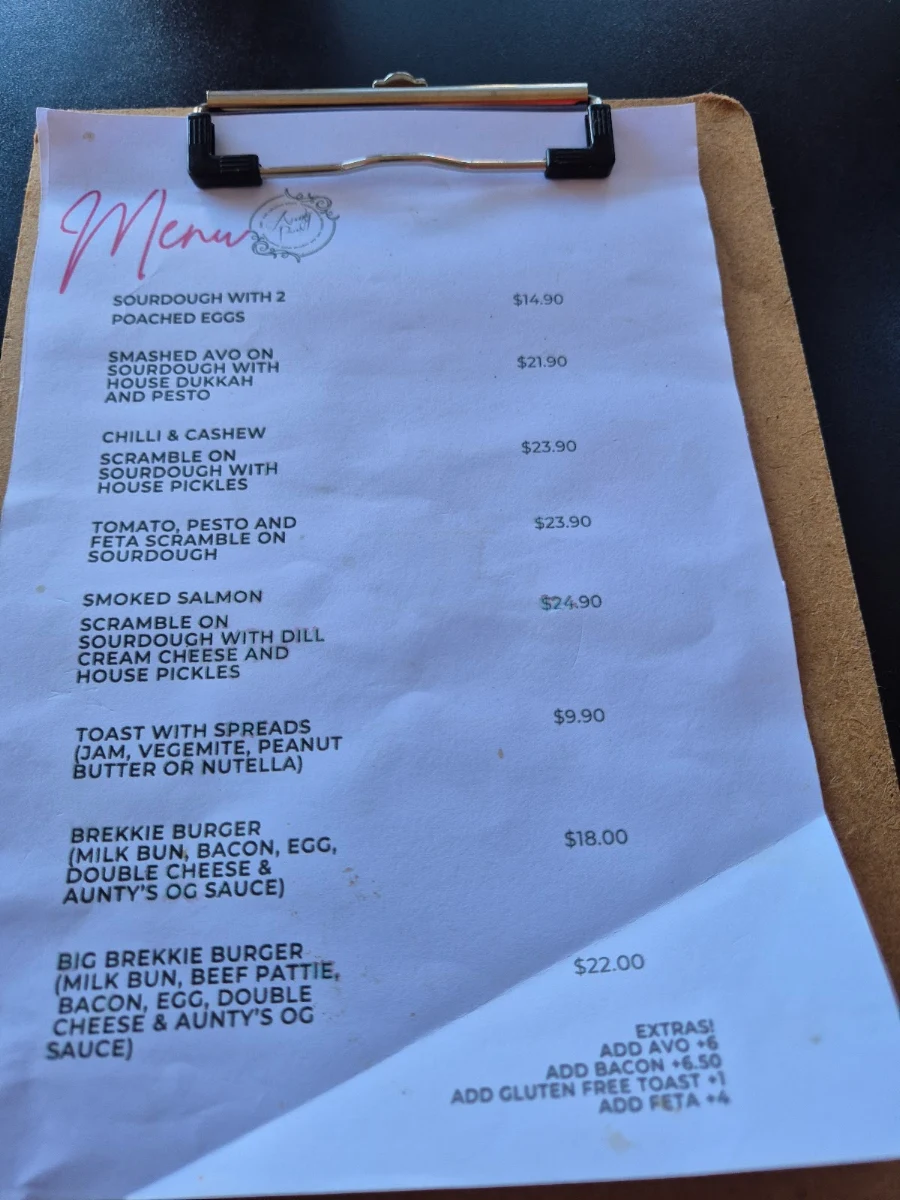 Menu
SOURDOUGH WITH 2
POACHED EGGS
$14.90
SMASHED AVO ON
SOURDOUGH WITH
HOUSE DUKKAH
AND PESTO
$21.90
CHILLI & CASHEW
SCRAMBLE ON
SOURDOUGH WITH
HOUSE PICKLES
$23.90
TOMATO, PESTO AND
FETA SCRAMBLE ON
SOURDOUGH
$23.90
SMOKED SALMON
SCRAMBLE ON
SOURDOUGH WITH DILL
CREAM CHEESE AND
HOUSE PICKLES
$24.90
TOAST WITH SPREADS
(JAM, VEGEMITE, PEANUT
BUTTER OR NUTELLA)
$9.90
BREKKIE BURGER
(MILK BUN, BACON, EGG,
DOUBLE CHEESE &
AUNTY'S OG SAUCE)
$18.00
BIG BREKKIE BURGER
(MILK BUN, BEEF PATTIE,
BACON, EGG, DOUBLE
CHEESE & AUNTY'S OG
SAUCE)
$22.00
EXTRAS!
ADD AVO +6
ADD BACON +6.50
ADD GLUTEN FREE TOAST +1
ADD FETA +4